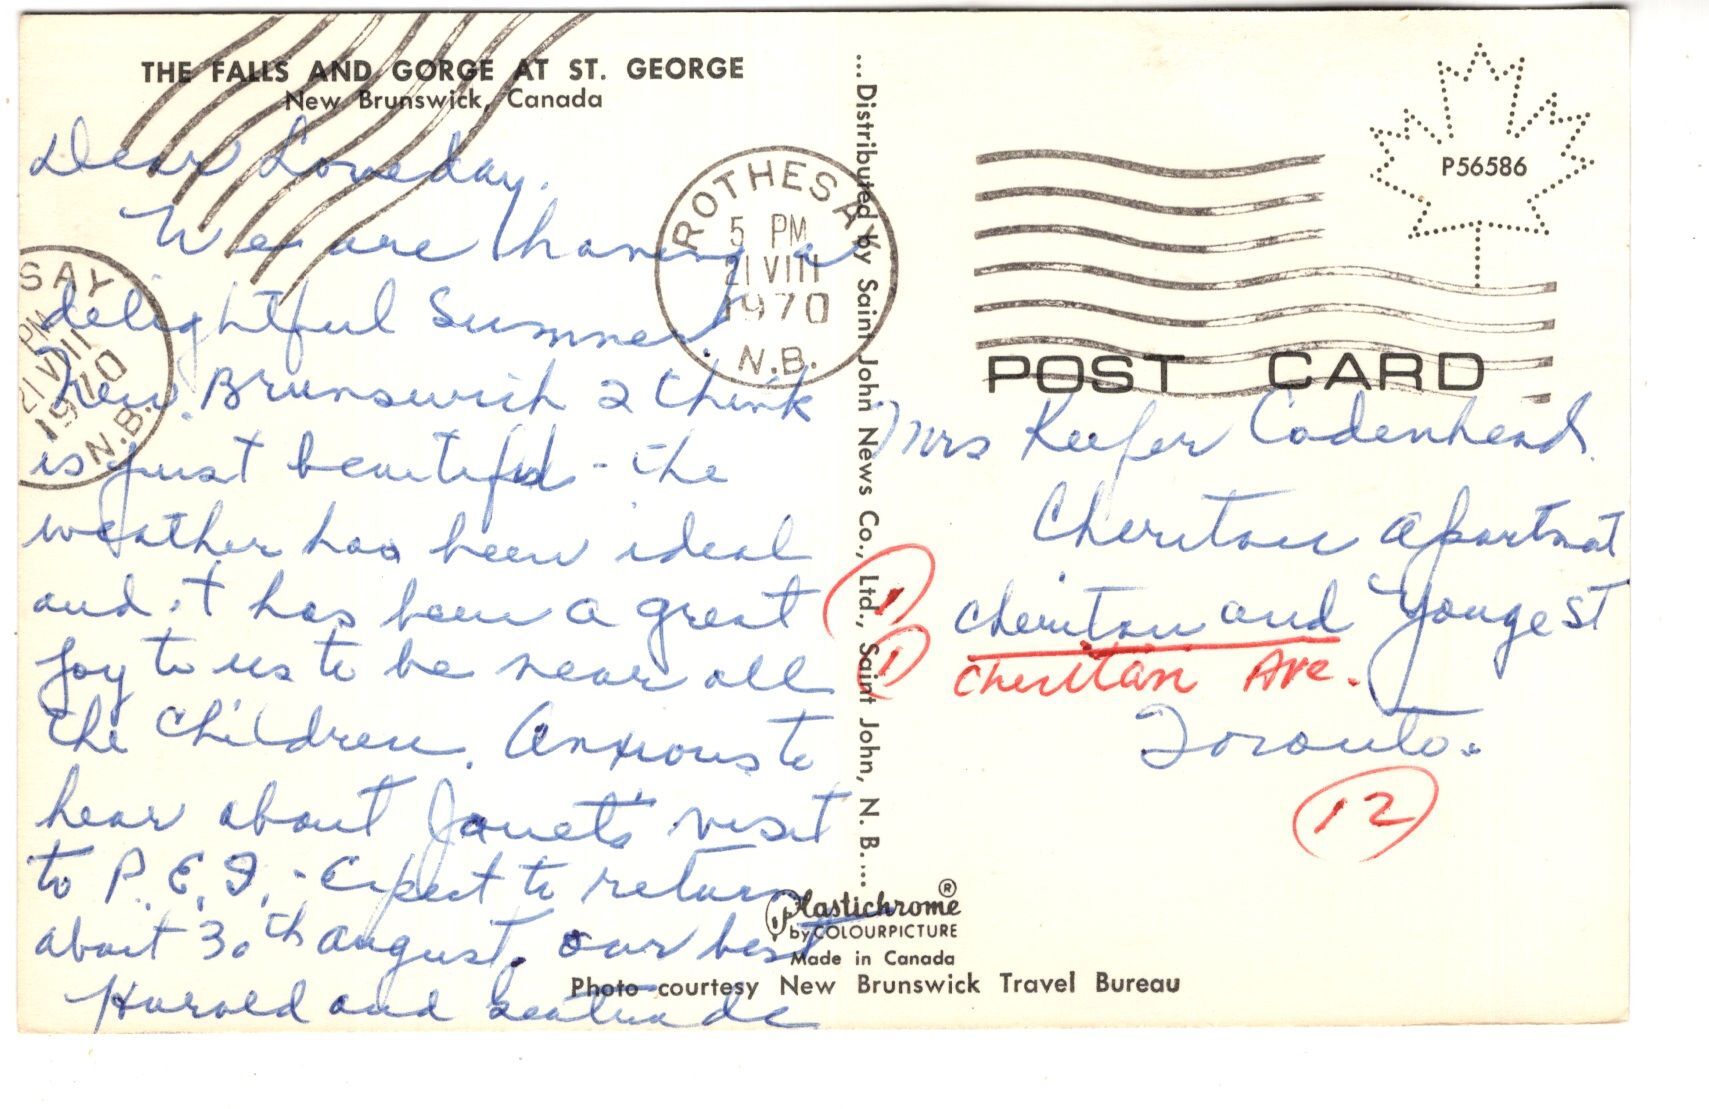 THE FALLS AND GORGE AT ST. GEORGE
New Brunswick, Canada
Dear Loveday.
We are having a
delightful Summer.
New Brunswick I think
is just beautiful - the
weather has been ideal
and it has been a great
joy to us to be near all
the children. Anxious to
hear about Janet's visit
to P.E.I. - Expect to return
about 30th August. Our best
Harold and
SAY
PM
21 VIII
1970
N.B.
ROTHESAY
5 PM
21 VIII
1970
N.B.
...Distributed by Saint John News Co., Ltd., Saint John, N. B....
P56586
POST CARD
Mrs Keefer Cadenhead.
Cheritan Apartmat
Cheritan and Yonge St
1
1
Cheritan Ave.
Toronto.
12
Plastichrome ®
by COLOURPICTURE
Made in Canada
Photo courtesy New Brunswick Travel Bureau